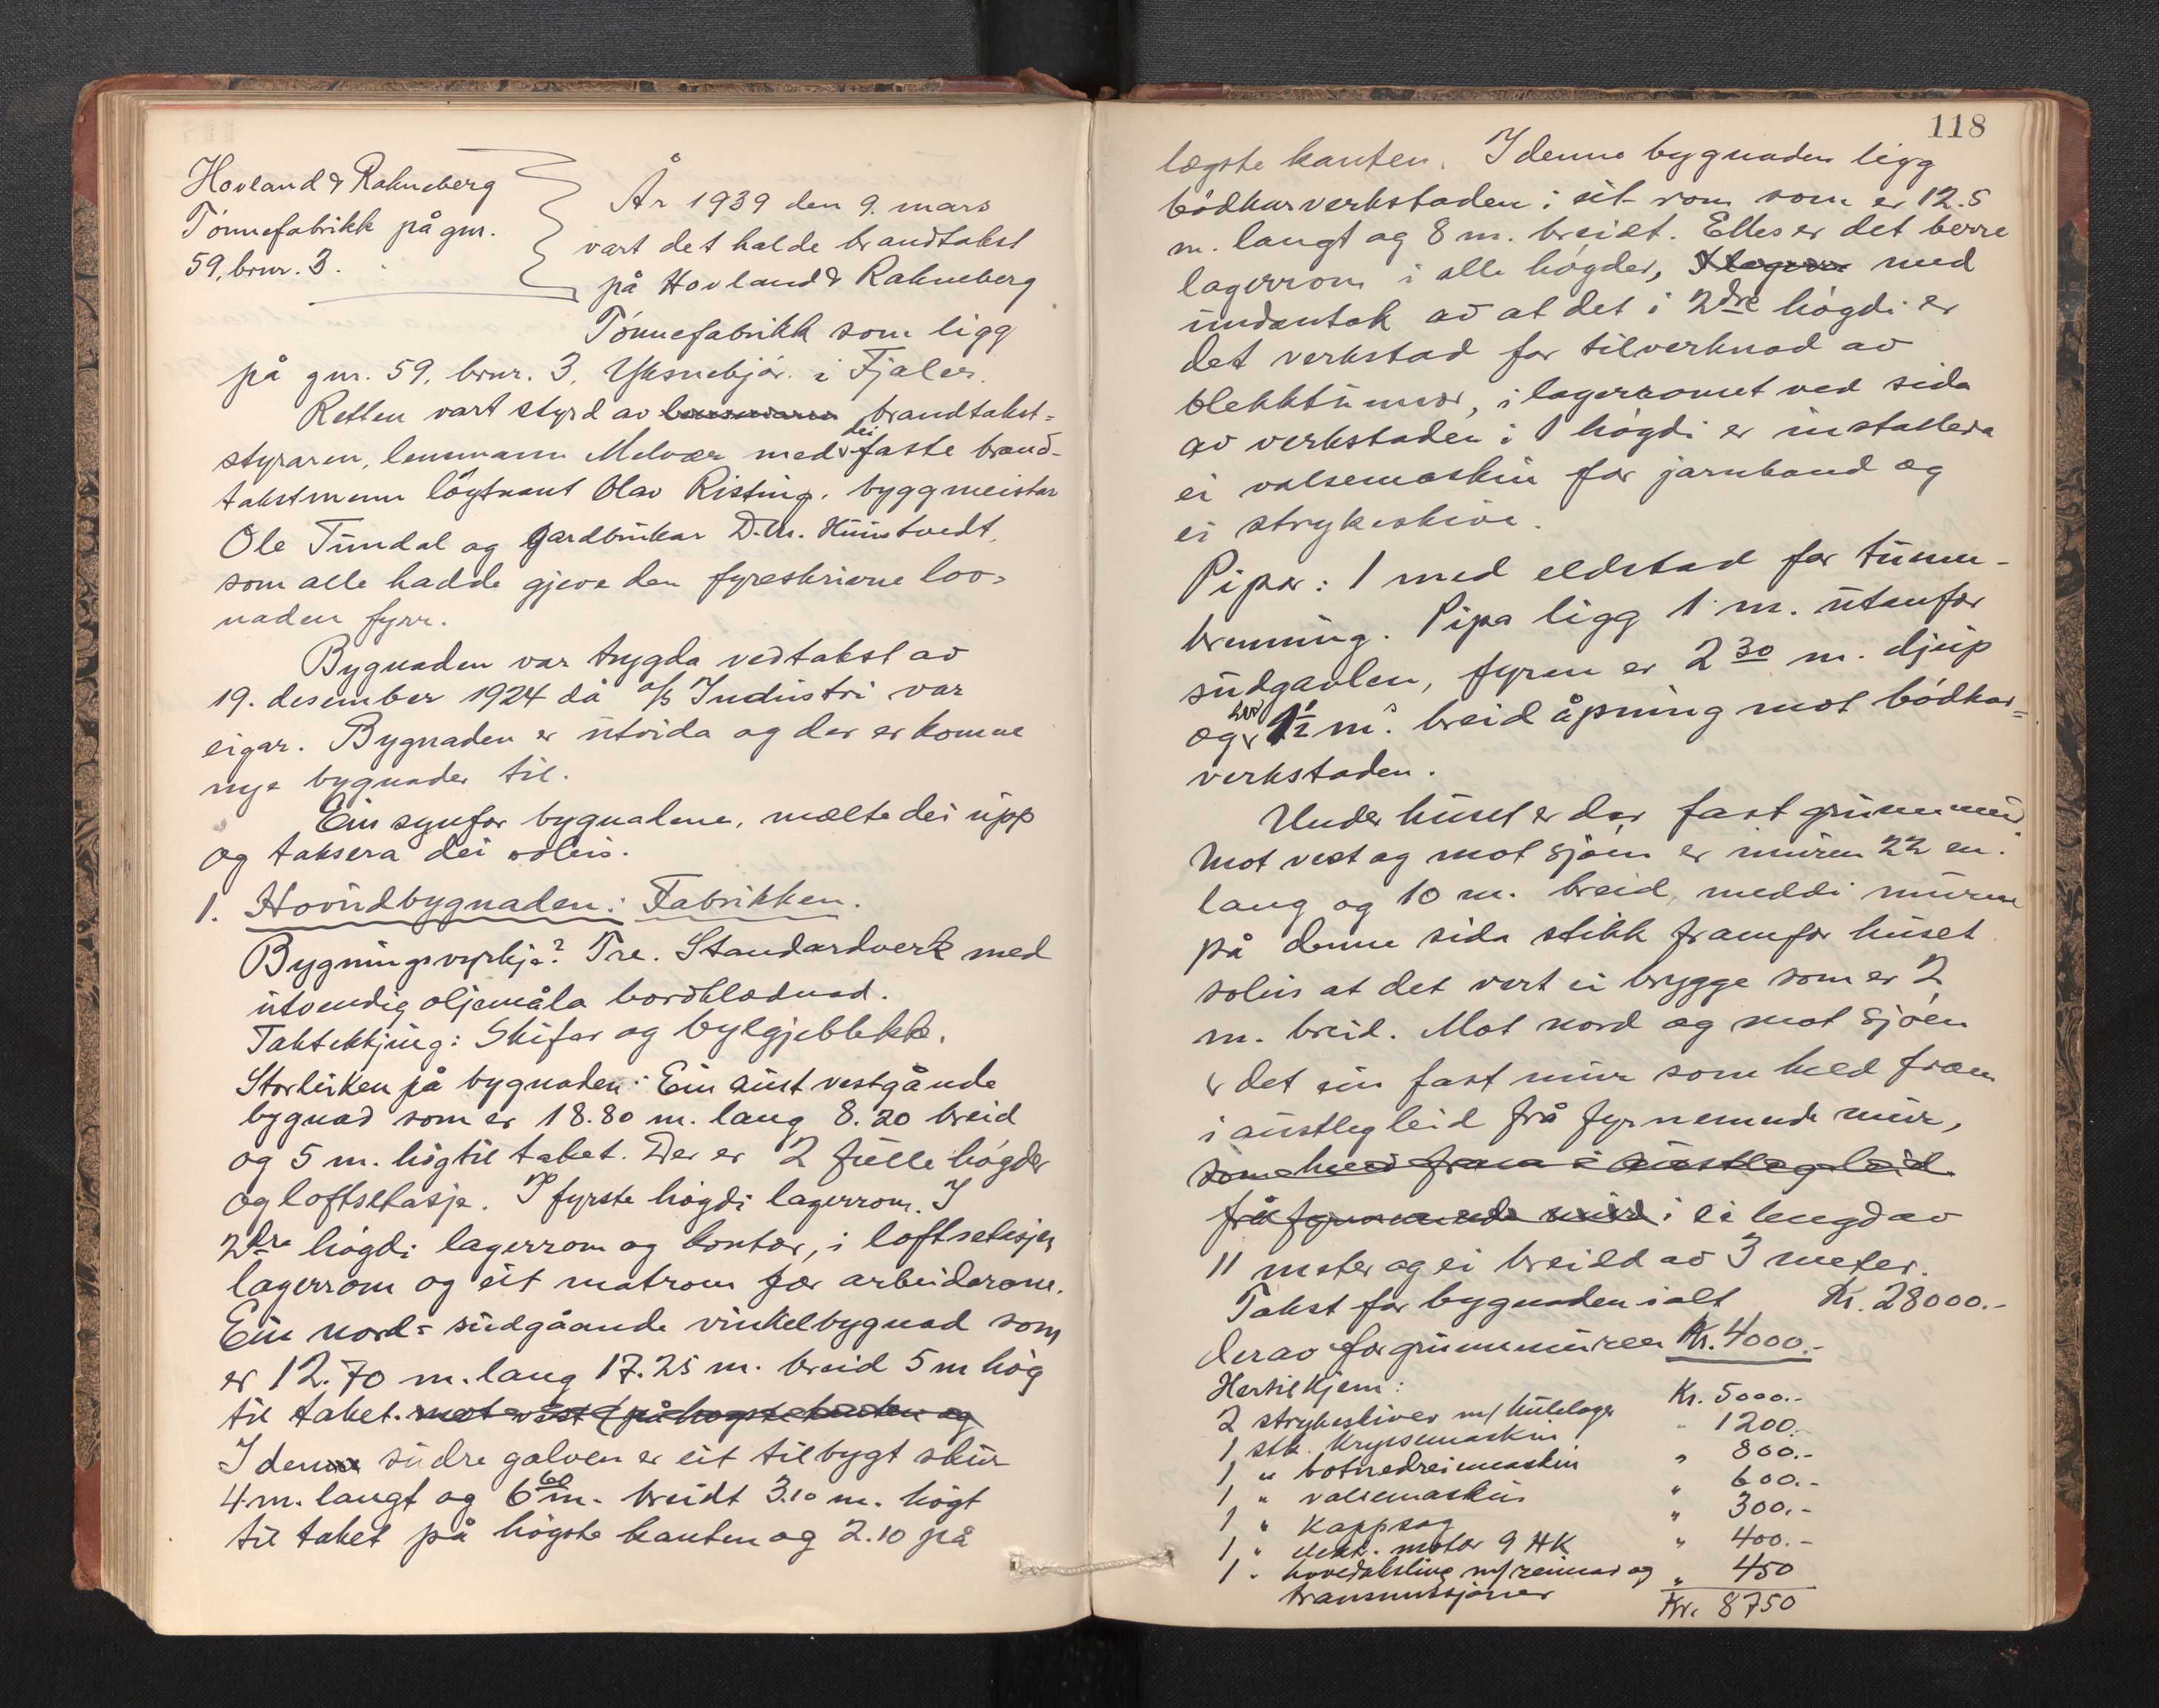 Hovland & Rahneberg
Tönnefabrikk på gnr.
59, brnr. 3.
År 1939 den 9. mars
vart det halde brandtakst
på Hovland & Rahneberg
Tönnefabrikk som ligg
på gnr. 59, brnr. 3, Yksnebjör i Fjaler.
Retten vart styrd av lensmann brandtakst-
styraren, lensmann Melvær med dei faste brand-
takstmenn löytnant Olav Risting, byggmeistar
Ole Tundal og gardbrukar D. M. Hunstvedt,
som alle hadde gjeve den fyreskrivne lov-
naden fyrr.
Bygnaden var trygda ved takst av
19. desember 1924 då a/s Industri var
eigar. Bygnaden er utvida og der er komne
nye bygnader til.
Ein synfor bygnadene, mælte dei upp
og taksera dei soleis.
1. Hovudbygnaden: Fabrikken.
Bygningsvyrkje? Tre. Standardverk med
utvendig oljemåla bordklædnad.
Taktekkjing: Skifer og bylgjeblekk.
Storleiken på bygnaden: Ein aust vestgåande
bygnad som er 18.80 m. lang 8.20 breid
og 5 m. hög til taket. Der er 2 fulle högder
og loftsetasje. I fyrste högdi lagerrom. I
2dre högdi lagerrom og kontor, i loftsetasjen
lagerrom og eit matrom for arbeidarane.
Ein nord- sudgåande vinkelbygnad som
er 12.70 m. lang 17.25 m. breid 5 m hög
til taket. mot vest (på högste kanten og
I denne sudre galven er eit tilbygt skur
4 m. langt og 6 60 m. breidt 3.10 m. högt
til taket på högste kanten og 2.10 på
118
lægste kanten. I denne bygnaden ligg
bödkarverkstaden i eit rom som er 12.5
m. langt og 8 m. breidt. Elles er det berre
lagerrom i alle högder, med
undantak av at det i 2dre högdi er
det verkstad for tilverknad av
blekktunnor, i lagerromet ved sida
av verkstaden i 1 högdi er installera
ei valsemaskin for jarnband og
ei strykeskive.
Pipor: 1 med eldstad for tunne-
brenning. Pipa ligg 1 m. utanfor
sudgavlen, fyren er 2 30 m. djup
og har 1 1/2 m. breid åpning mot bödkar-
verkstaden.
Under huset er der fast grunnmur
Mot vest og mot sjöen er muren 22 m.
lang og 10 m. breid, med di muren
på denne sida stikk framfor huset
soleis at det vert ei brygge som er 2
m. breid. Mot nord og mot sjöen
er det ein fast mur som held fram
i austleg leid frå fyrnemnde mur,
som held fram i austleg leid
frå fyrnemnde mur i ei lengd av
11 meter og ei breidd av 3 meter.
Takst for bygnaden ialt Kr. 28000.-
derav for grunnmuren Kr. 4000.-
Hertil kjem:
2 strykeskiver m/ kulelager Kr. 5000.-
1 stk. krysemaskin " 1200.-
1 " botnedreimaskin " 800.-
1 " valsemaskin " 600.-
1 " Kappsag " 300.-
1 " elektr. motor 9 HK " 400.-
1 " hovedaksling m/reimar og " 450
transmissjoner Kr. 8750